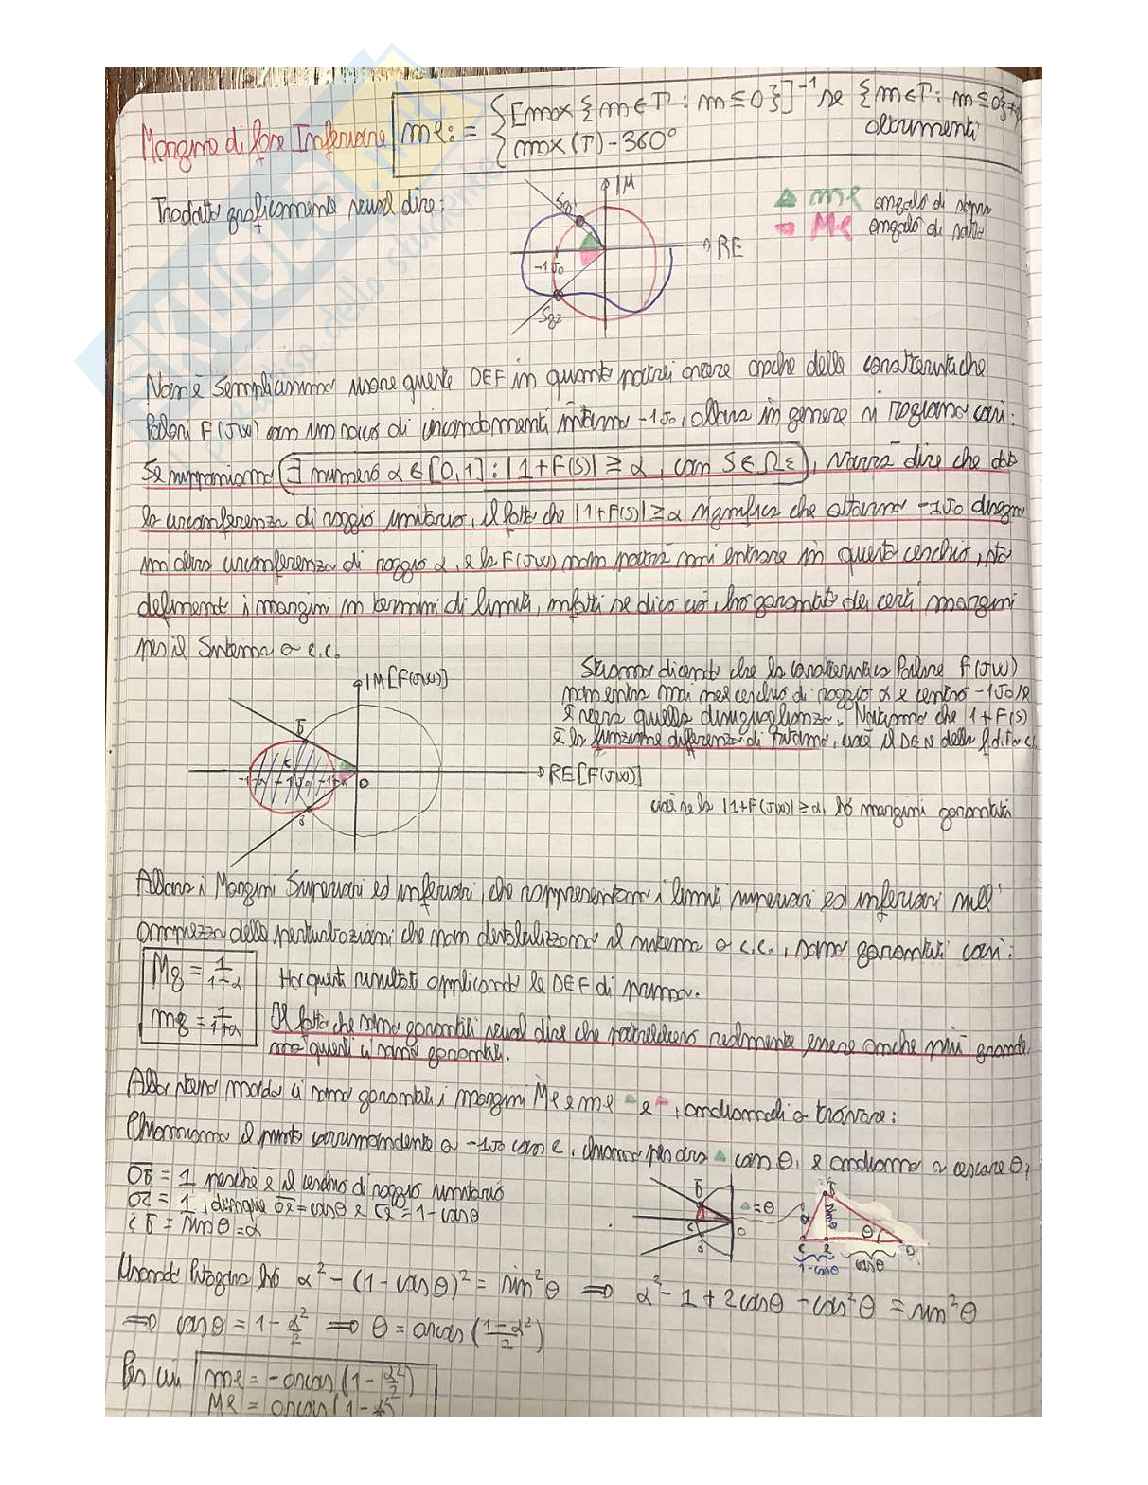 Margine di fase Inferiore mφ := { [max {m ∈ T : m ≤ 0}]⁻¹ se {m ∈ T : m ≤ 0} ≠ ∅
max (T) - 360° altrimenti
Tradotto graficamente vuol dire:
IM
RE
-1+J0
mφ angolo di sopra
Mφ angolo di sotto
Non è semplicissimo usare queste DEF in quanto potrei avere anche delle caratteristiche
Polari F(Jω) con un sacco di incrociamenti intorno -1+J0, allora in genere si ragiona così:
Se supponiamo ∃ numero α ∈ [0,1] : |1+F(s)| ≥ α, con S ∈ Ω_ε, vorrà dire che data
la circonferenza di raggio unitario, il fatto che |1+F(s)| ≥ α significa che attorno -1+J0 disegno
un'altra circonferenza di raggio α, e la F(Jω) non potrà mai entrare in questo cerchio, sto
definendo i margini in termini di limiti, infatti se dico ciò, ho garantito dei certi margini
per il Sistema a c.c.
IM[F(Jω)]
RE[F(Jω)]
Stiamo dicendo che la caratteristica Polare F(Jω)
non entra mai nel cerchio di raggio α e centro -1+J0 se
è vera quella disuguaglianza. Notiamo che 1+F(s)
è la funzione differenza di ritorno, cioè il DEN della f.d.t. a c.c.
cioè se la |1+F(Jω)| ≥ α, ho margini garantiti
Allora i Margini Superiori ed inferiori, che rappresentano i limiti superiori ed inferiori sull'
ampiezza delle perturbazioni che non destabilizzano il sistema a c.c., sono garantiti così:
Mg = 1/(1-α)
mg = 1/(1+α)
Ho questi risultati applicando la DEF di prima.
Il fatto che siano garantiti vuol dire che potrebbero realmente essere anche più grandi
ma questi ci sono garantiti.
Allo stesso modo ci sono garantiti i margini Mφ e mφ e , andiamoli a trovare:
Chiamiamo il punto corrispondente a -1+J0 con c, chiamo poi dis con θ, e andiamo a cercare θ,
OB = 1 perché è il cerchio di raggio unitario
OC = 1, dunque OZ = cosθ e CZ = 1-cosθ
CB = sinθ = α
= θ
1-cosθ
cosθ
Usando Pitagora ho α² - (1-cosθ)² = sin²θ ⟹ α² - 1 + 2cosθ - cos²θ = sin²θ
⟹ cosθ = 1 - α²/2 ⟹ θ = arcos((1-α²)/2)
Per cui mφ = -arcos(1 - α²/2)
Mφ = arcos(1 - α²